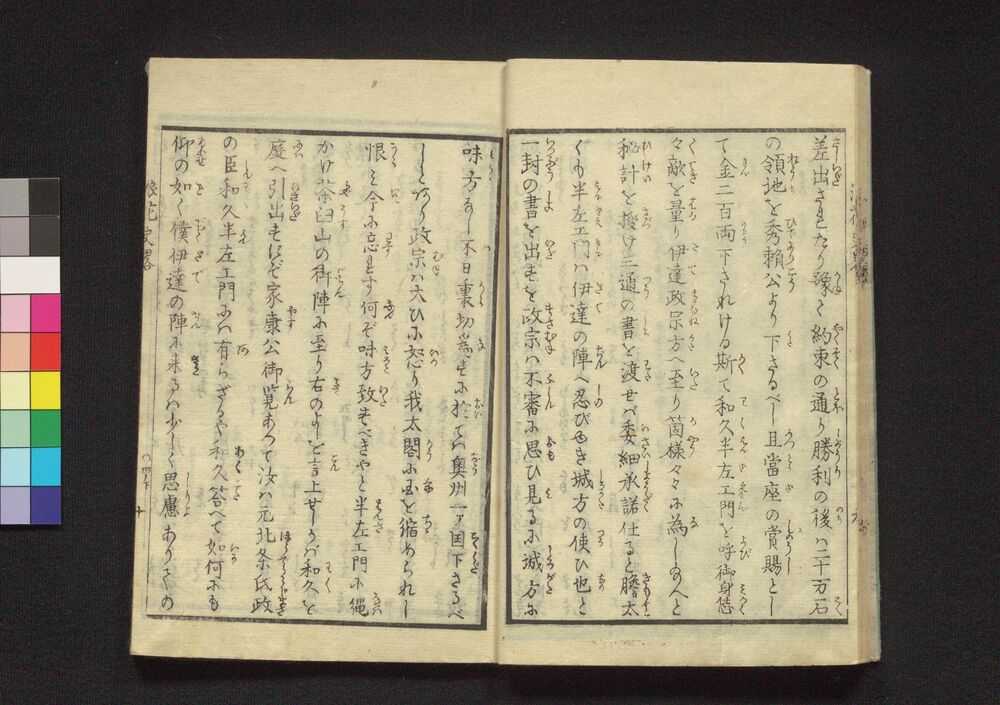 差出されたり豫て約束の通り勝利の後ハ二十万石
の領地を秀頼公より下さるべし且當座の賞賜とし
て金二百両下されける斯て和久半左エ門を呼御身悠
々敵を量り伊達政宗方へ至り箇様々々に為し給へと
秘計を授け三通の書を渡せバ委細承諾仕ると膽太
くも半左エ門ハ伊達の陣へ忍びゆき城方の使ひ也と
一封の書を出すを政宗ハ不審に思ひ見るに城方に
味方なし不日裏切為すに於てハ奥州一ヶ国下さるべ
しとあり政宗ハ大ひに怒り我太閤に国を縮められし
恨ミ今に忘れず何ぞ味方致すべきやと半左エ門に縄
かけ茶臼山の御陣に至り右のよしを言上せしかバ和久を
庭へ引出すにぞ家康公御覧あつて汝ハ元北条氏政
の臣和久半左エ門にハ有らざるや和久答へて如何にも
仰の如く僕伊達の陣に来るハ少しく思慮ありての